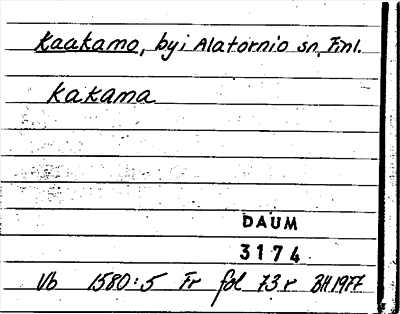 Kaakamo, by i Alatornio sn, Finl.
Kakama
DAUM
3174
Vb 1580:5 Fr fol 73r BH 1977